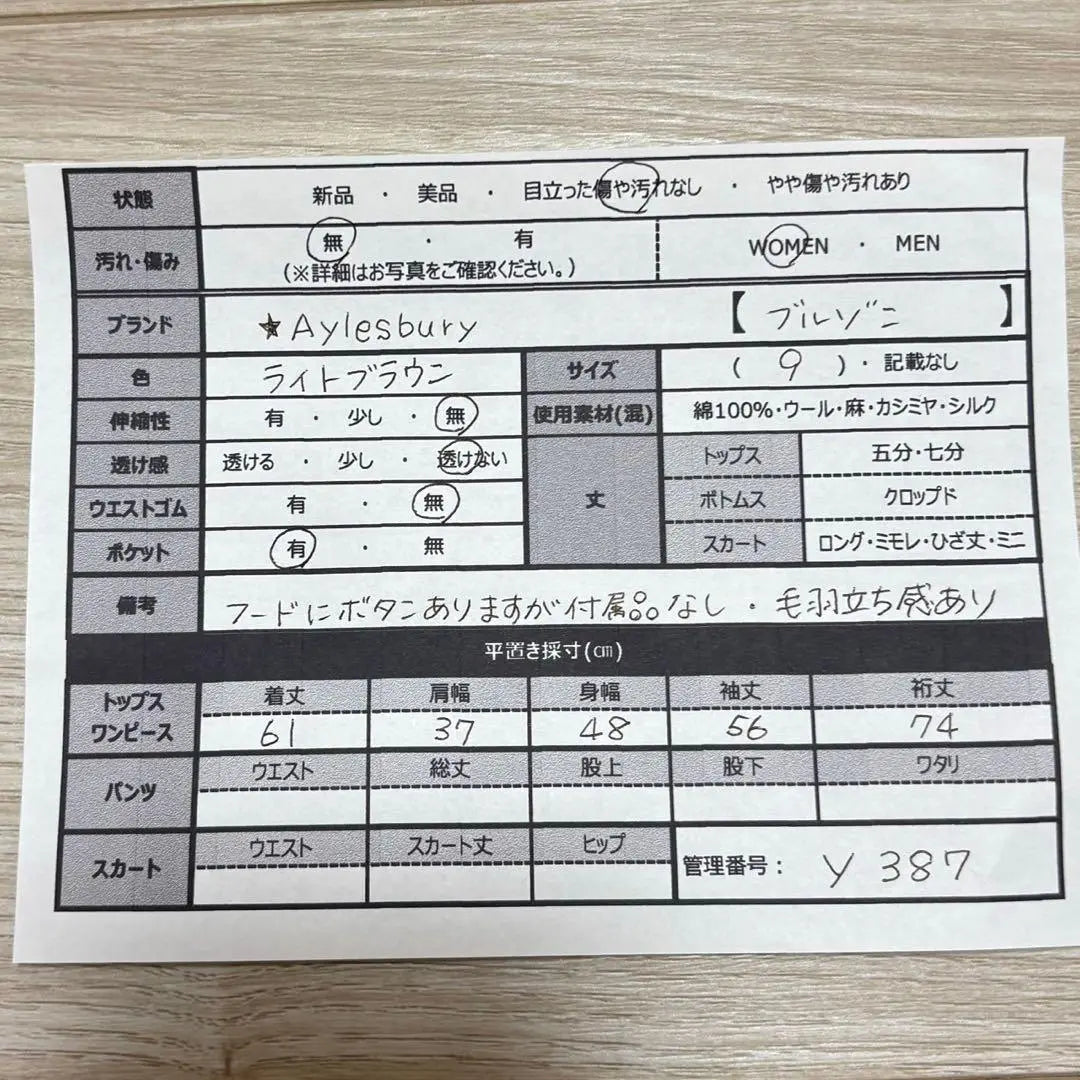 状態 新品 ・ 美品 ・ 目立った傷や汚れなし ・ やや傷や汚れあり
汚れ・傷み 無 ・ 有 WOMEN ・ MEN
(※詳細はお写真をご確認ください。)
ブランド ★Aylesbury 【 ブルゾン 】
色 ライトブラウン サイズ ( 9 )・記載なし
伸縮性 有 ・ 少し ・ 無 使用素材(混) 綿100%・ウール・麻・カシミヤ・シルク
透け感 透ける ・ 少し ・ 透けない 丈 トップス 五分・七分
ウエストゴム 有 ・ 無 ボトムス クロップド
ポケット 有 ・ 無 スカート ロング・ミモレ・ひざ丈・ミニ
備考 フードにボタンありますが付属品なし・毛羽立ち感あり
平置き採寸(㎝)
トップス ワンピース 着丈 肩幅 身幅 袖丈 裄丈
61 37 48 56 74
パンツ ウエスト 総丈 股上 股下 ワタリ
スカート ウエスト スカート丈 ヒップ 管理番号: Y 387